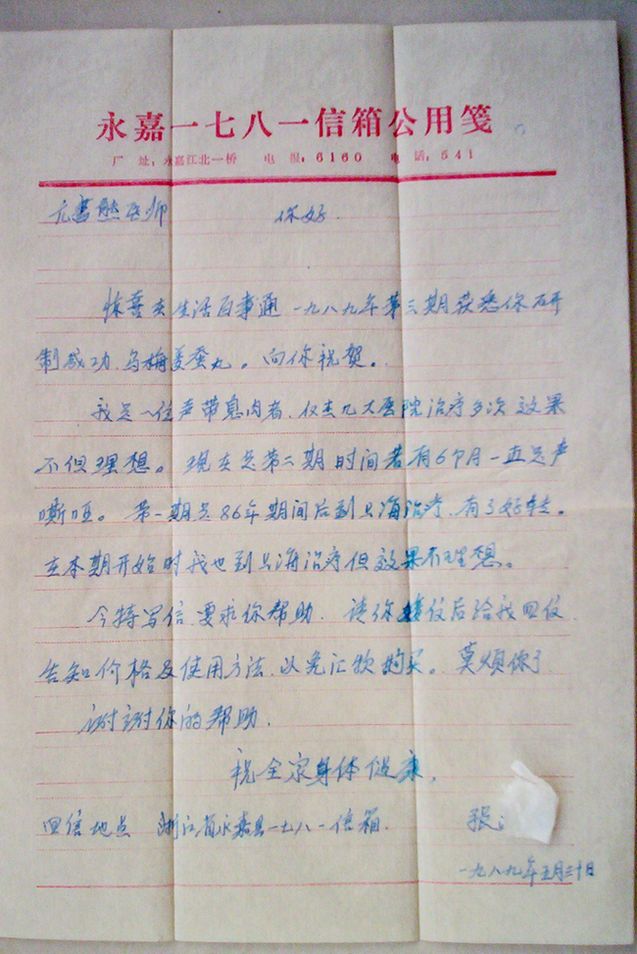 永嘉一七八一信箱公用笺
厂 址：永嘉江北一桥 电 报：6160 电 话：541
医师 你好.
惊喜在生活百事通一九八九年第三期获悉你研
制成功.乌梅姜蚕丸。向你祝贺。
我是一位声带息肉者.仅在九大医院治疗多次效果
不但理想。现在是第二期时间若有6个月一直是声
嘶哑。第一期是86年期间后到上海治疗.有了好转。
在本期开始时我也到上海治疗但效果不理想。
今特写信.要求你帮助.请你接仪后给我回仪.
告知价格及使用方法.以免汇款购买。莫烦你了
谢谢你的帮助.
祝全家身体健康,
回信地点 浙江省永嘉县一七八一信箱. 张
一九八九年五月三十日